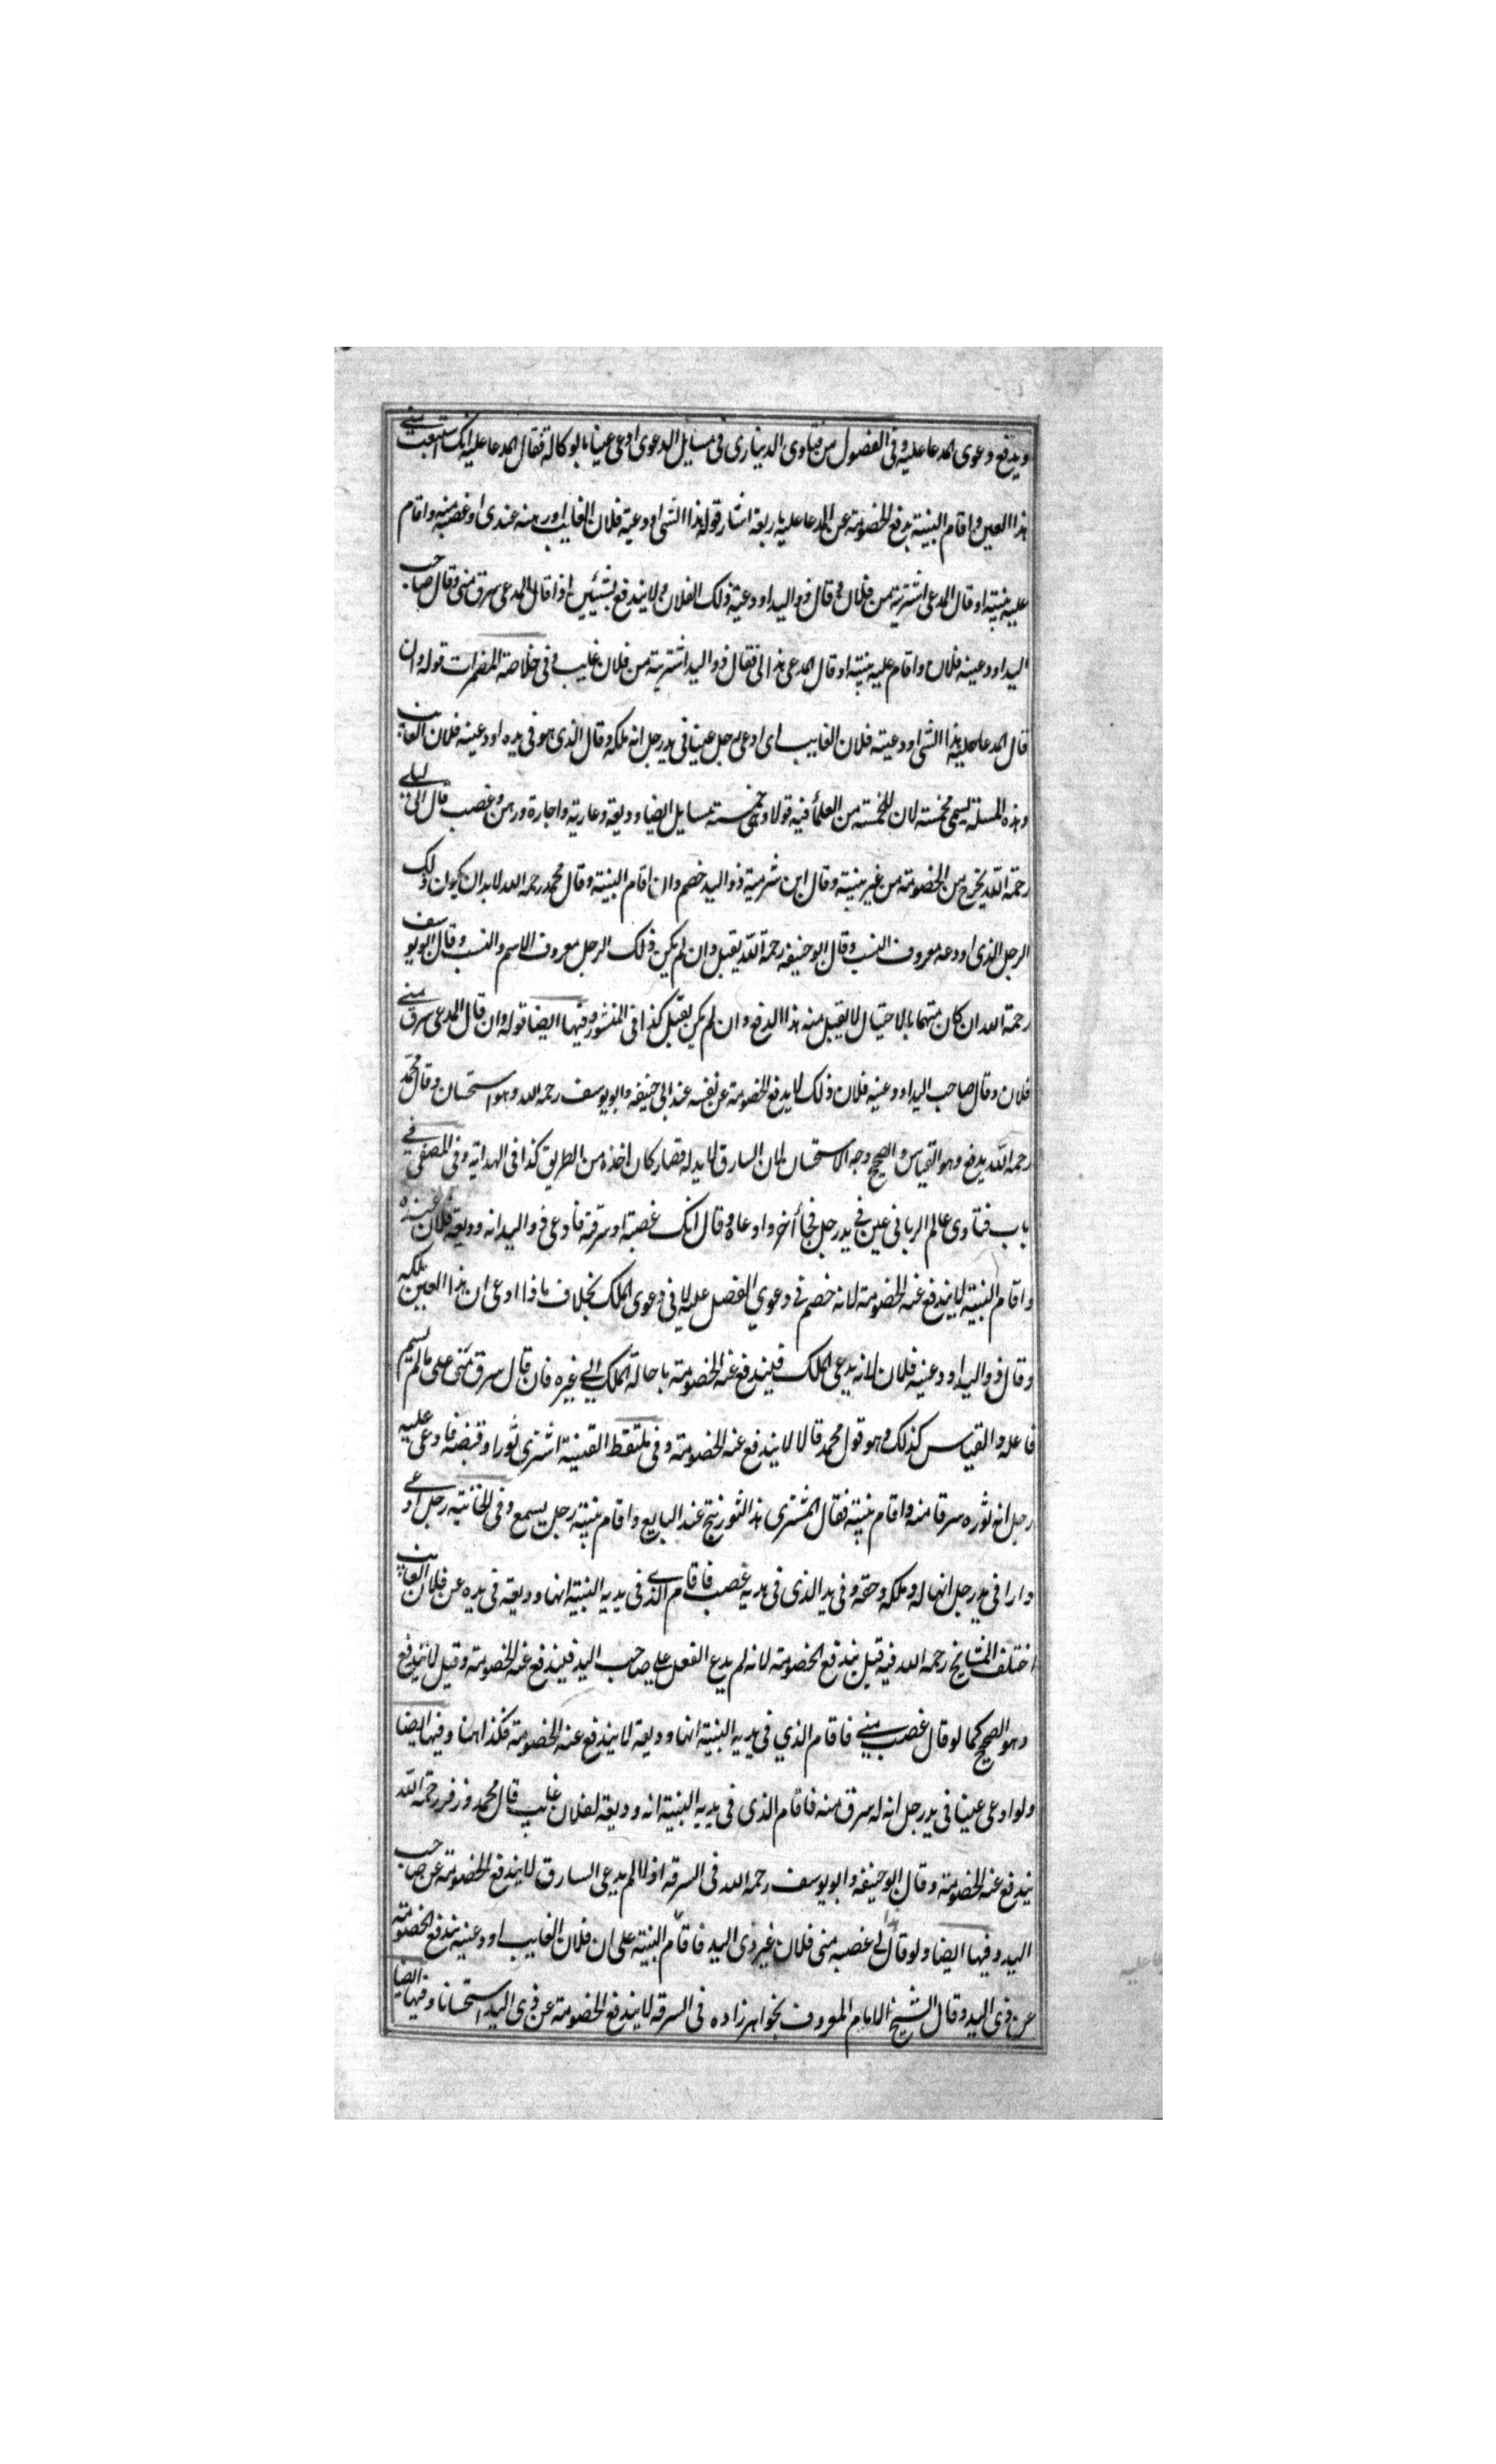 ويدفع دعوى المدعا عليه وفى الفصول من فتاوى الدينارى فى مسايل الدعوى ادعى عينا بالوكالة فقال المدعا عليه انك استبعت منى
هذا العين واقام البنية يدفع الخصومة عن المدعا عليه باربعة اشيا قوله هذا الشى اودعنيه فلان الغايب اورهنه عندى او غصبته منه واقام
عليه بنية او قال المدعى اشتريته من فلان وقال ذو اليد اودعنيه ذلك الفلان ولا يندفع بشيئين اذا قال المدعى سرق منى وقال صاحب
اليد اودعنيه فلان واقام عليه بنية او قال المدعى هذا لى فقال ذو اليد اشتريته من فلان غايب وفى خلاصة المضمرات قوله وان
قال المدعا عليه هذا الشى اودعنيه فلان الغايب اى ادعى رجل عينا فى يد رجل انه ملكه وقال الذى هو فى يده اودعنيه فلان الغايب
وهذه المسئلة يسمى مخمسة لان للخمسة من العلمأ فيه قولا وهى خمسة مسايل ايضا وديعة وعارية واجارة ورهن وغصب قال ابن ابى ليلى
رحمة الله يخرج من الخصومة من غير بنية وقال ابن شبرمة ذو اليد خصم وان اقام البنية وقال محمد رحمه الله لابد ان يكون ذلك
الرجل الذى اودعه معروف النسب وقال ابو حنيفه رحمة الله يقبل وان لم يكن ذلك الرجل معروف الاسم والنسب وقال ابو يوسف
رحمة الله ان كان متهما بالاحتيال لا يقبل منه هذا الدفع وان لم يكن يقبل كذا فى المنشور وفيها ايضا قوله وان قال المدعى سرق منى
فلان وقال صاحب اليد اودعنيه فلان ذلك لا يدفع الخصومة عن نفسه عند ابى حنيفه وابو يوسف رحمه الله وهو استحسان وقال محمد
رحمه الله يدفع وهو القياس والصحيح وجه الاستحسان لان السارق لا يد له فصار كان اخذه من الطريق كذا فى الهداية وفى المصفى فى
باب فتاوى عالم الربانى عين فى يد رجل فجأ آخر وادعاه وقال انك غصبته او سرقته فادعى ذو اليد انه وديعة فلان عنده
واقام البنية لا يندفع عنه الخصومة لانه خصم فى دعوى الفصل عليه لا فى دعوى الملك بخلاف ما اذا ادعى ان هذا العين ملكه
وقال ذو اليد اودعنيه فلان لانه يدعى الملك فيندفع عنه الخصومة باحالة الملك الى غيره فان قال سرق منى على ما لم يسم
فاعله والقياس كذلك وهو قول محمد قالا لا يندفع عنه الخصومة وفى ملتقط القنية اشترى ثورا وقبضه فادعى عليه
رجل انه ثوره سرقا منه واقام بنية فقال المشترى هذا الثور نتج عند البايع واقام بنية رجل يسمع وفى الخانية رجل ادعى
دارا فى يد رجل انها له وملكه وحقه وفى يد الذى فى يديه غصب فاقام الذى فى يديه البنية انها وديعة فى يده عن فلان الغايب
اختلف المشايخ رحمه الله فيه قيل يندفع الخصومة لانه لم يدع الفعل على صاحب اليد فيندفع عنه الخصومة وقيل لا يندفع
وهو الصحيح كما لو قال غصب منى فاقام الذي فى يديه البنية انها وديعة لا يندفع عنه الخصومة فكذا هنا وفيها ايضا
ولو ادعى عينا فى يد رجل انه له سرق منه فاقام الذى فى يديه البنية انه وديعة لفلان غايب قال محمد وزفر رحمة الله
يندفع عنه الخصومة وقال ابو حنيفه وابو يوسف رحمه الله فى السرقه اذ لا لم يدعى السارق لا يندفع الخصومة عن صاحب
اليد وفيها ايضا ولو قال هذا لى غصبه منى فلان غير ذى اليد فاقام البنية على ان فلان الغايب اودعنيه يندفع الخصومة
عن ذى اليد وقال الشيخ الامام المعروف بخواهر زاده فى السرقه لا يندفع الخصومة عن ذى اليد استحسانا وفيها ايضا